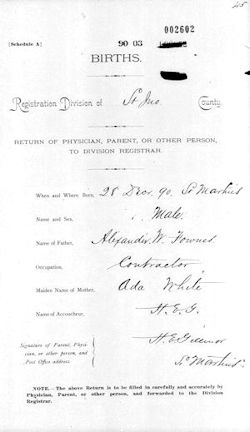 45
002602
[Schedule A]
90 03
BIRTHS.
Registration Division of St Jno. County.
RETURN OF PHYSICIAN, PARENT, OR OTHER PERSON,
TO DIVISION REGISTRAR.
When and Where Born, 28 Decr. 90, St Martins
Name and Sex, Male
Name of Father, Alexander W. Fownes
Occupation, Contractor
Maiden Name of Mother, Ada White
Name of Accoucheur, H. E. G.
Signature of Parent, Physician, or other person, and Post Office address. H. E. Gillmor
St Martins
NOTE.—The above Return is to be filled in carefully and accurately by
Physician, Parent, or other person, and forwarded to the Division
Registrar.